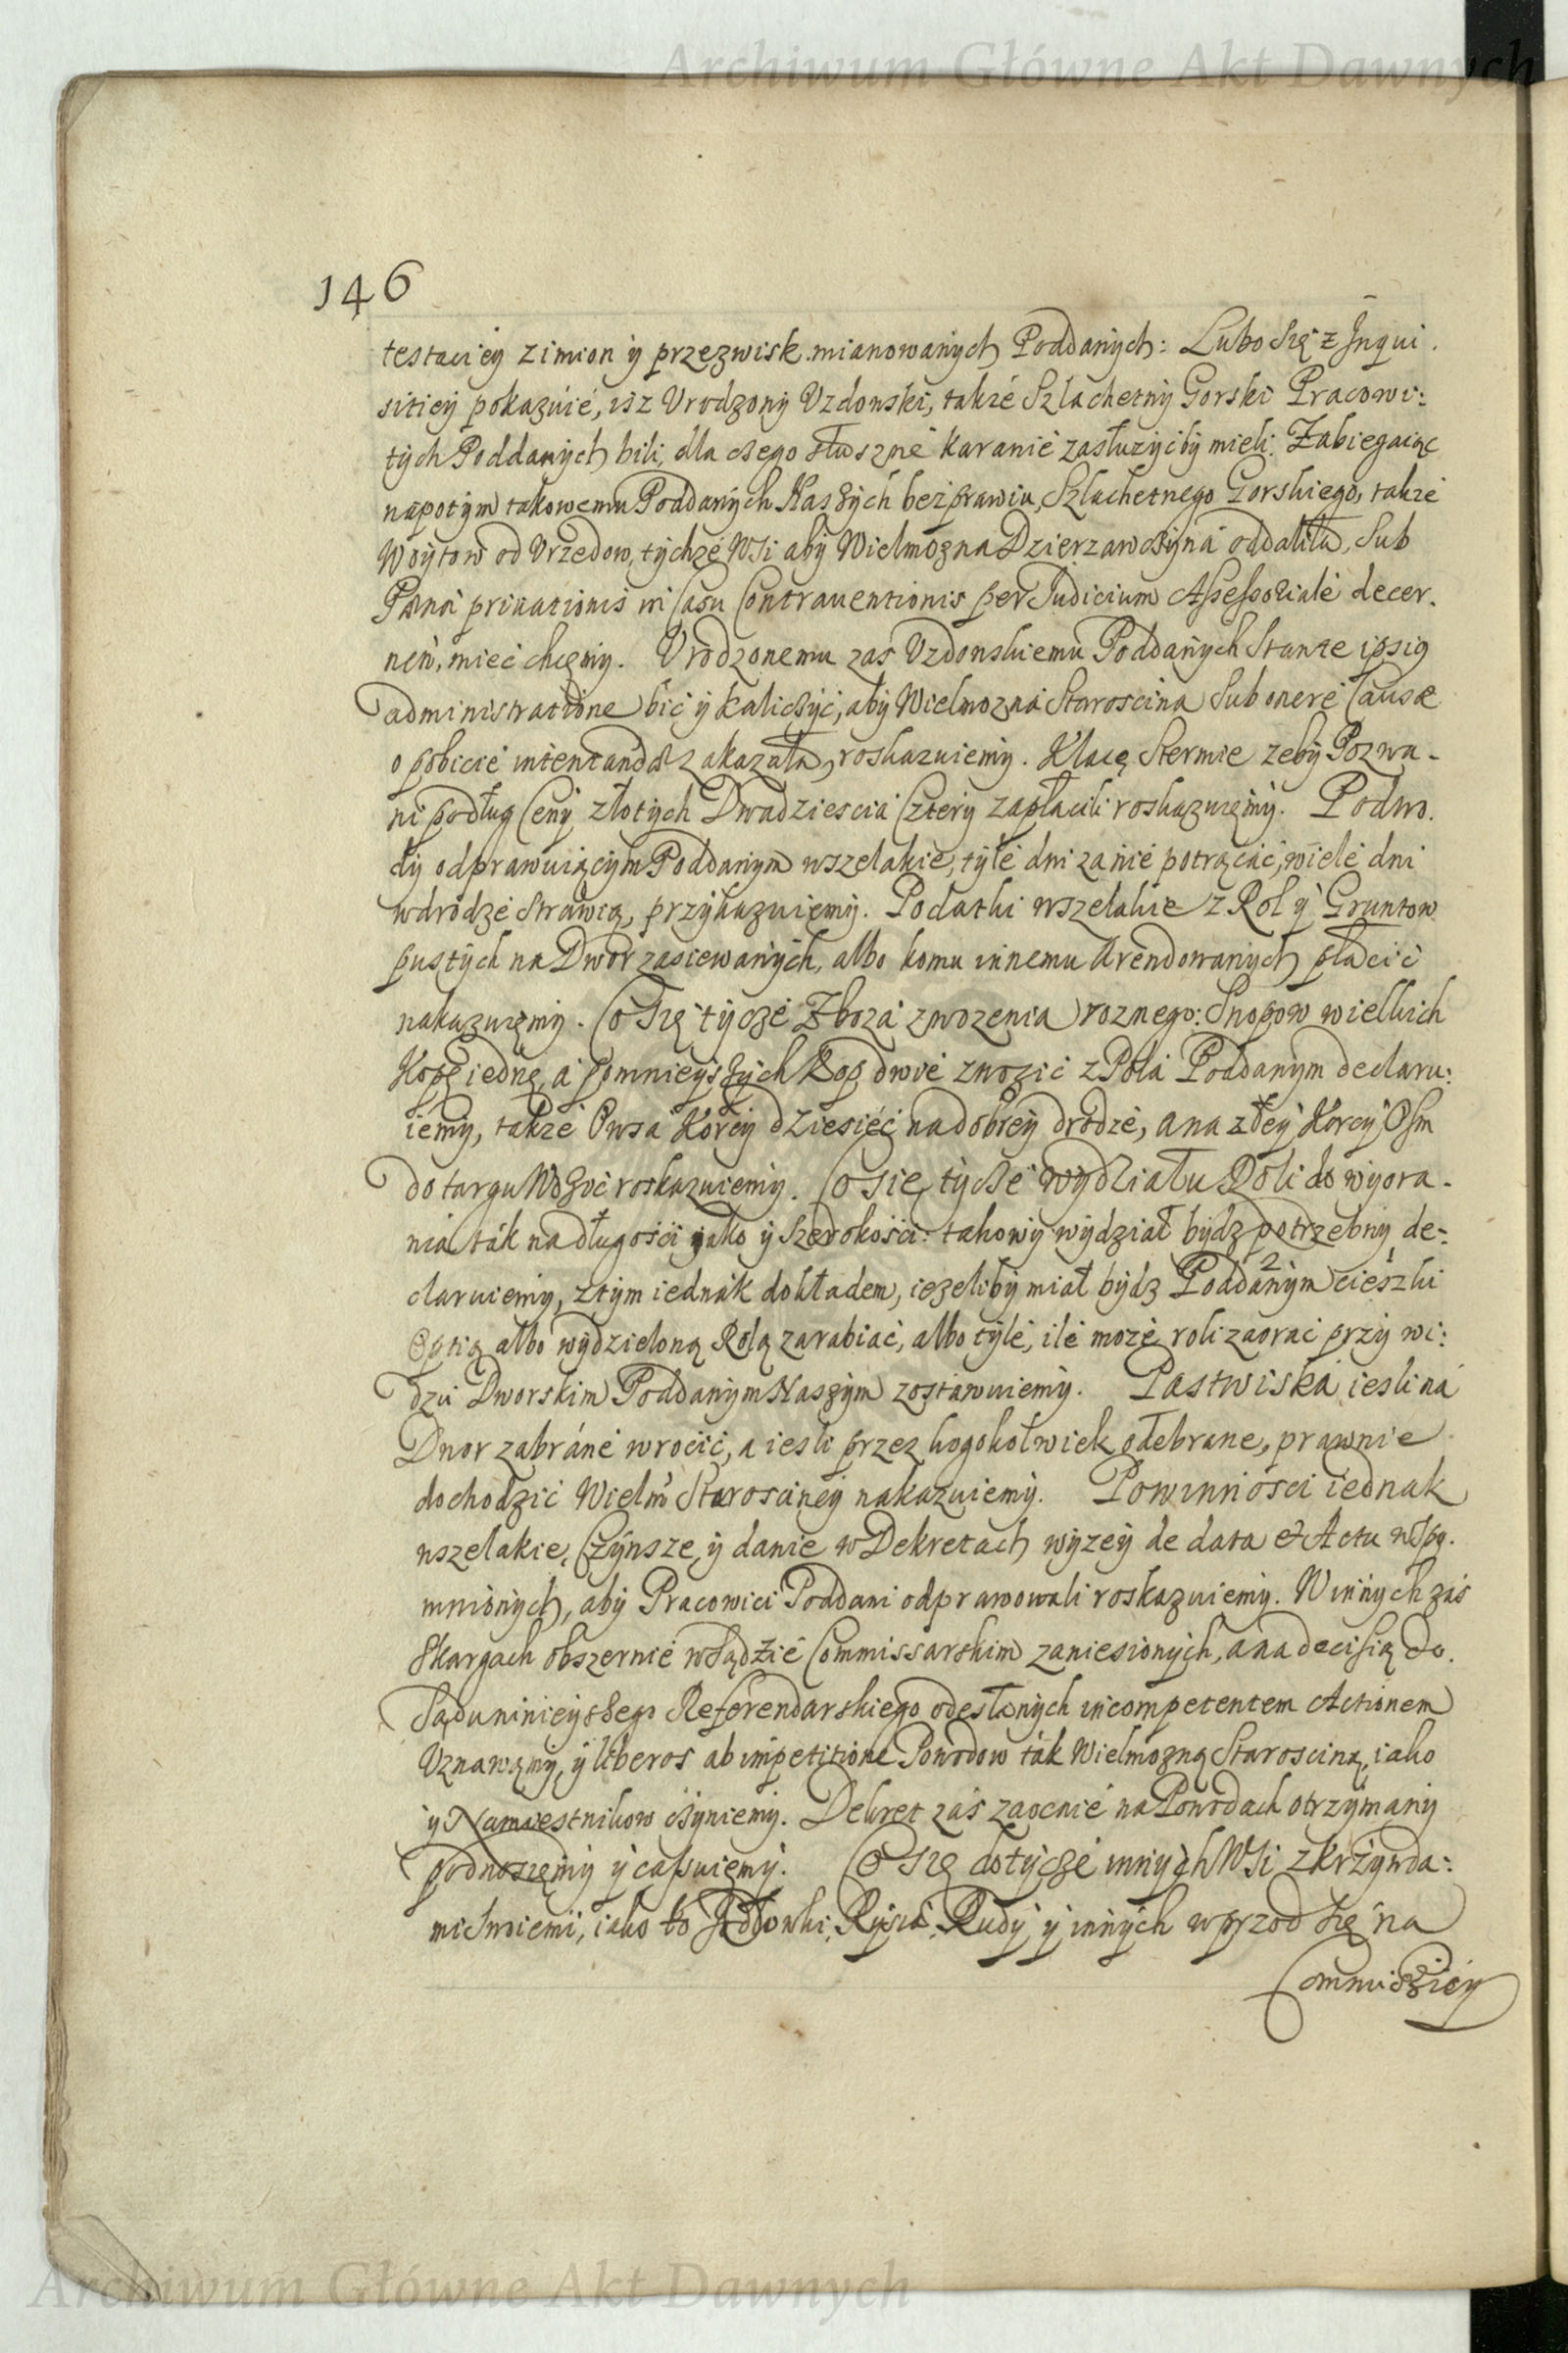 Archiwum Główne Akt Dawnych
146
testaciey z imion y przezwisk mianowanych Poddanych: Lubo się z Inqui.
siticy pokazuie, isz Urodzony Uzdonski, także Szlachetny Gorski Pracowi:
tych Poddanych bili, dla czego słuszne karanie zasłużyćby mieli. Zabiegaiąc
napotym takowemu Poddanych Naszych bezprawiu, Szlachetnego Gorskiego, także
Woytow od Urzędow, tychże Wsi aby Wielmożna Dzierzawczyna oddaliła, sub
Pœna priuationis in Casu Contrauentionis per Judicium Assessoriale decer.
nen, mieć chcemy. Urodzonemu zaś Uzdonskiemu Poddanych Stante ipsig
administratione bić y kaliczyć, aby Wielmozna Starościna sub onere Causæ
o pobicie intentandæ zakazała, roskazuiemy. Klacę Stermie żeby Pozwa-
ni podług Ceny złotych Dwadziescia Cztery zapłacili roskazuiemy. Podwo.
dy odprawuiącym Poddanym wszelakie, tyle dni za nie potrącać, wiele dni
w drodze strawią, przykazuiemy. Podatki wszelakie z Rol y Gruntow
pustych na Dwor zasiewanych, albo komu innemu Arendowanych płacić
nakazuiemy. Co się tycze Zboża zwozenia roznego: Snopow wielkich
Kopę iednę, a pomnieyszych Kop dwie zwozić z Pola Poddanym declaru:
iemy, także Owsa Korcy dziesięć na dobrey drodze, a na złey Korcy Osm
do targu Wozić roskazuiemy. Co się tycze wydziału Roli do wyora-
nia tak na długości yako y szerokości: takowy wydział bydz potrzebny de-:
claruiemy, z tym iednak dokładem, ieżeliby miał bydz Poddanym 2 cięszki
Optią albo wydzieloną Rolą zarabiać, albo tyle, ile może roli zaorać przy wi:
dzu Dworskim Poddanym Naszym zostawuiemy. Pastwiska iesli na
Dwor zabrane wrocić, a iesli przez kogokolwiek odebrane, prawnie
dochodzić Wielm Starosciney nakazuiemy. Powinności iednak
wszelakie, Czynsze, y danie w Dekretach wyzey de data et Actu wspo.
mnionych, aby Pracowici Poddani odprawowali roskazuiemy. W innych zaś
Skargach obszernie w Sądzie Commissarskim zaniesionych, a na decisią do
Sądu ninieyszego Referendarskiego odesłanych incompetentem Actionem
Uznawamy, y liberos ab impetitione Powodow tak Wielmozną Starościną, iako
y Namiestnikow czyniemy. Dekret zaś zaocnie na Powodach otrzymany
podnosiemy y cassuiemy. Co się dotycze innych Wsi z krzywda-:
mi swiemi, iako to Jodłowki, Rysia, Rudy y innych wprzod się na
Commiszięy
Archiwum Główne Akt Dawnych